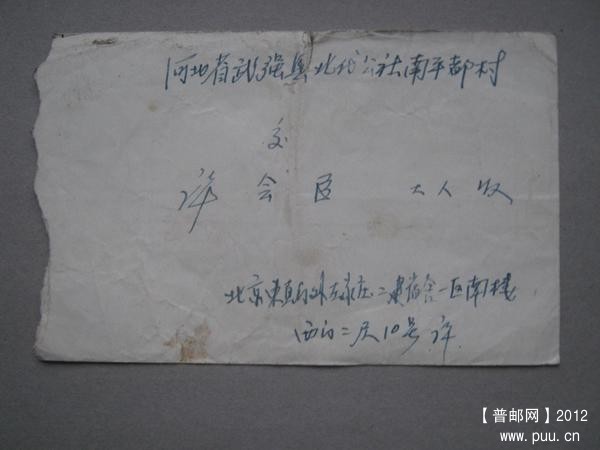 河北省武强县北代公社南平都村
交
许 会 臣 大人收
北京东直门外左家庄二建宿舍一区南楼
西门二层10号 许
【普邮网】2012
www.puu.cn